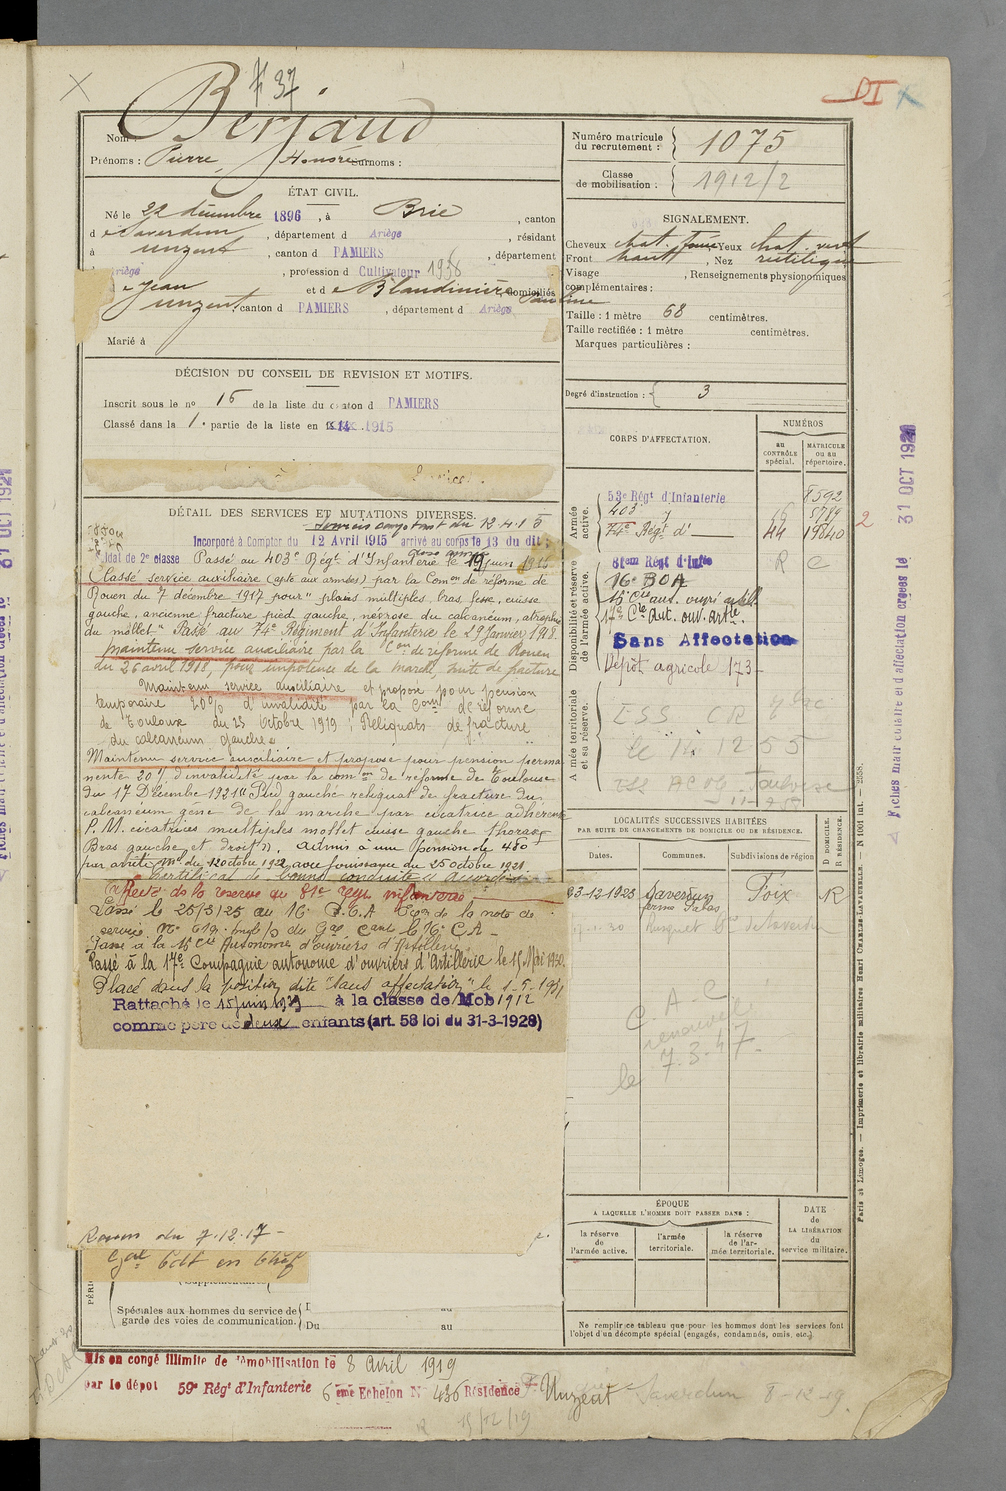 # 37
DI
Nom : Berjaud
Prénoms : Pierre, Honoré Surnoms :
ÉTAT CIVIL.
Né le 22 décembre 1896, à Brie, canton
de Saverdun, département d Ariège, résidant
à Unzent, canton d PAMIERS, département
Ariège, profession d Cultivateur 1938
e Jean et de Blandinière Pauline domiciliés
Unzent, canton d PAMIERS, département d Ariège
Marié à
DÉCISION DU CONSEIL DE REVISION ET MOTIFS.
Inscrit sous le no 16 de la liste du canton d PAMIERS
Classé dans la 1e partie de la liste en 1915
DÉTAIL DES SERVICES ET MUTATIONS DIVERSES.
Services comptant du 12.4.15
Incorporé à Compter du 12 Avril 1915 arrivé au corps le 13 du dit ;
ldat de 2e classe Passé au 403e Régt d'Infanterie le 19 juin 1915
Classé service auxiliaire (apte aux armées) par la Comon de réforme de
Rouen du 7 décembre 1917 pour "plaies multiples, bras, fesse, cuisse
gauche, ancienne fracture pied gauche, névrose du calcanéum, atrophie
du mollet" Passé au 74e Régiment d'Infanterie le 29 Janvier 1918.
Maintenu service auxiliaire par la Con de réforme de Rouen
du 26 avril 1918, pour impotence de la marche, suite de fracture
Maintenu service auxiliaire et proposé pour pension
temporaire 20% d'invalidité par la Comon de réforme
de Toulouse du 23 Octobre 1919 ; Reliquats de fracture
du calcanéum gauche
Maintenu service auxiliaire et proposé pour pension perma
nente 20% d'invalidité par la comon de réforme de Toulouse
du 17 Décembre 1921 Pied gauche reliquat de fracture du
calcanéum gêne de la marche par cicatrice adhérente
P. M. cicatrices multiples mollet cuisse gauche thorax
Bras gauche et droit. Admis à une pension de 480
par arrêté Mel du 12 octobre 1922 avec jouissance du 25 octobre 1921
Certificat de bonne conduite accordé
Affecté de la réserve au 81e Regt infanterie
Passé le 25/3/25 au 16e B.O.A
service du Gal Cant le 16e CA
Passé à la 15e Cie Autonome d'ouvriers d'Artillerie
Passé à la 17e Compagnie autonome d'ouvriers d'Artillerie le 15 Mai 1930
Placé dans la position dite "sans affectation" le 1-5-1931
Rattaché le 15 juin 1939 à la classe de Mob 1912
comme père de deux enfants (art. 58 loi du 31-3-1928)
Rouen du 7.12.17
Gal Cdt en Chef
Spéciales aux hommes du service de
garde des voies de communication.
Du au
Mis en congé illimité de démobilisation le 8 Avril 1919
par le dépôt 59e Régt d'Infanterie 6ème Echelon N° 436 Résidence Unzent Saverdun 8-12-19
15/12/19
Numéro matricule
du recrutement : 1075
Classe
de mobilisation : 1912/2
SIGNALEMENT.
Cheveux chat. foncé Yeux chat. vert
Front haut, Nez rectiligne
Visage, Renseignements physionomiques
complémentaires :
Taille : 1 mètre 68 centimètres.
Taille rectifiée : 1 mètre centimètres.
Marques particulières :
Degré d'instruction : 3
CORPS D'AFFECTATION.
NUMÉROS
au
CONTRÔLE
spécial.
MATRICULE
ou au
répertoire.
Armée
active.
53e Régt d'Infanterie 8592
403e 16 5789
74e Régt d' 44 19840
2
Disponibilité et réserve
de l'armée active.
81eme Régt d'Infie R C
16e BOA
15e Cie aut. ouvri artill.
17e Cie Aut. ouv. Artie.
Sans Affectation
Dépôt agricole 173
Armée territoriale
et sa réserve.
le 14 12 55
LOCALITÉS SUCCESSIVES HABITÉES
PAR SUITE DE CHANGEMENTS DE DOMICILE OU DE RÉSIDENCE.
Dates.
Communes.
Subdivisions de région
D DOMICILE.
R RÉSIDENCE.
23-12-1923 Saverdun Foix R
ferme Salas
de Saverdun
C. A. C
renouvelé
le 7.3.47
ÉPOQUE
A LAQUELLE L'HOMME DOIT PASSER DANS :
la réserve
de
l'armée active.
l'armée
territoriale.
la réserve
de l'ar-
mée territoriale.
DATE
de
LA LIBÉRATION
du
service militaire.
Ne remplir ce tableau que pour les hommes dont les services font
l'objet d'un décompte spécial (engagés, condamnés, omis, etc.)
Paris et Limoges. — Imprimerie et librairie militaires Henri CHARLES-LAVAUZELLE. — N° 1001 int. — 2558.
Fiches matriculaire et d'affectation créées le 31 OCT 1921